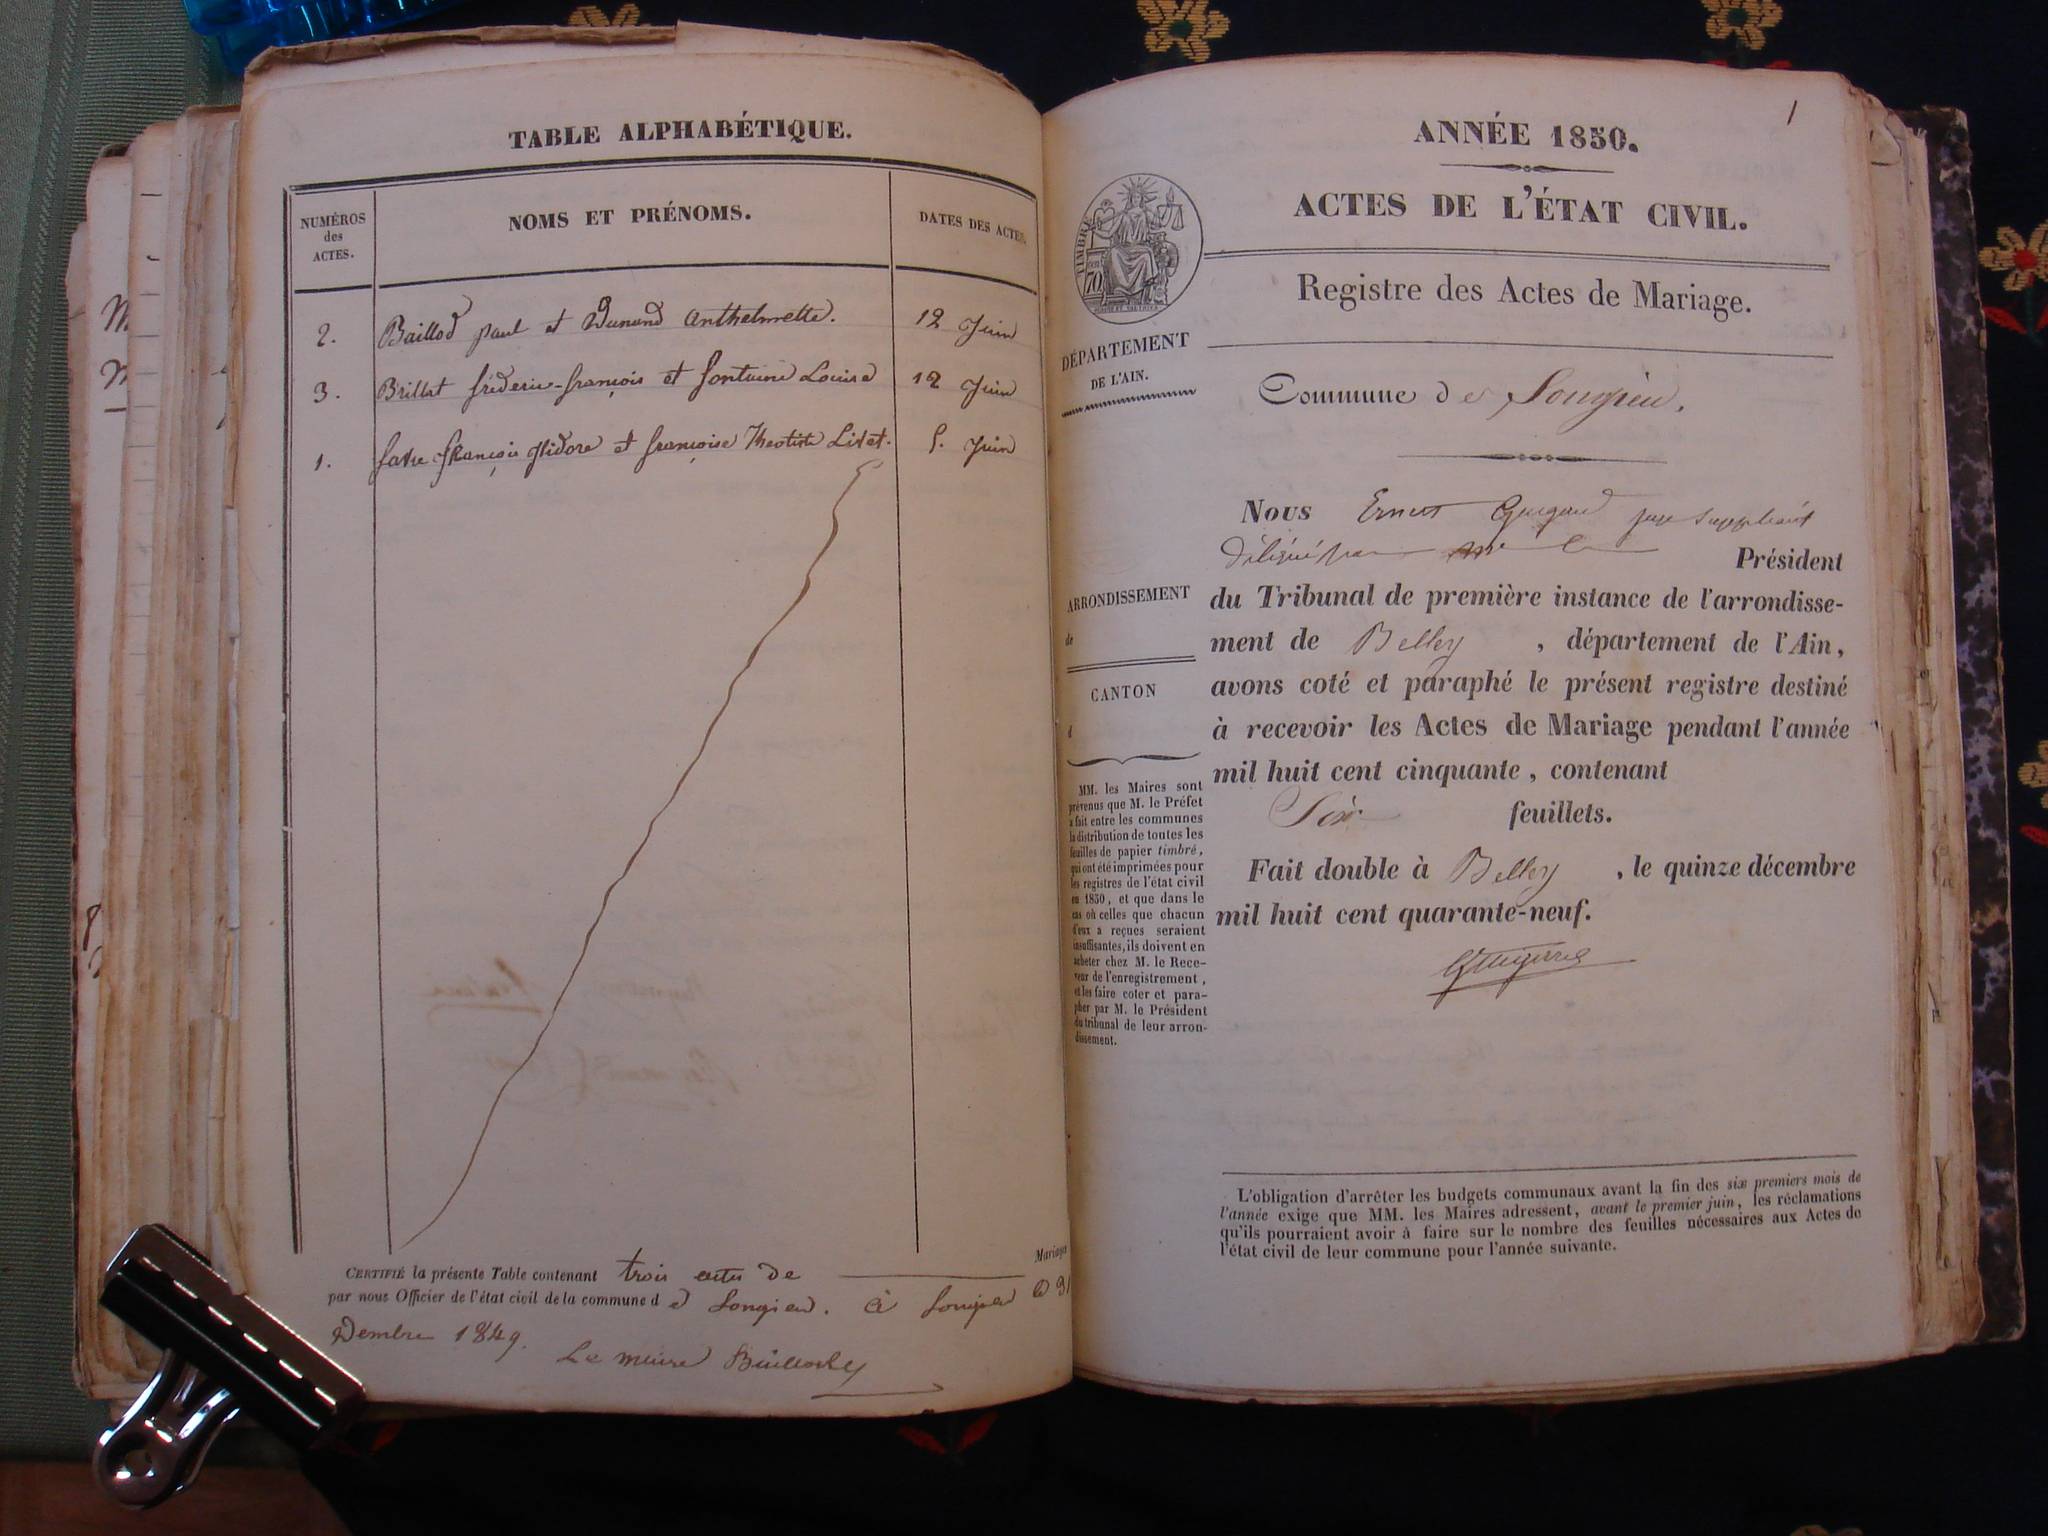 TABLE ALPHABÉTIQUE.
NUMÉROS
des
ACTES.
NOMS ET PRÉNOMS.
DATES DES ACTES.
2. Baillod paul et Dunand Anthelmette. 12 Juin
3. Brillat fréderic-françois et fontaine Louise 12 Juin
1. favre françois isidore et françoise Theotiste Litet. 5. Juin
Mariages
CERTIFIÉ la présente Table contenant trois actes de
par nous Officier de l'état civil de la commune d e Songieu. à Songieu le 31
Dembre 1849.
Le maire
1
ANNÉE 1850.
ACTES DE L'ÉTAT CIVIL.
Registre des Actes de Mariage.
TIMBRE
70
DÉPARTEMENT
DE L'AIN.
Commune de Songieu.
Nous Ernest juge suppléant
délégué par Mr le Président
du Tribunal de première instance de l'arrondisse-
ment de Belley , département de l'Ain,
avons coté et paraphé le présent registre destiné
à recevoir les Actes de Mariage pendant l'année
mil huit cent cinquante, contenant
Six feuillets.
Fait double à Belley , le quinze décembre
mil huit cent quarante-neuf.
ARRONDISSEMENT
de
CANTON
d
MM. les Maires sont
prévenus que M. le Préfet
a fait entre les communes
la distribution de toutes les
feuilles de papier timbré,
qui ont été imprimées pour
les registres de l'état civil
en 1850, et que dans le
cas où celles que chacun
d'eux a reçues seraient
insuffisantes, ils doivent en
acheter chez M. le Rece-
veur de l'enregistrement,
et les faire coter et para-
pher par M. le Président
du tribunal de leur arron-
dissement.
L'obligation d'arrêter les budgets communaux avant la fin des six premiers mois de
l'année exige que MM. les Maires adressent, avant le premier juin, les réclamations
qu'ils pourraient avoir à faire sur le nombre des feuilles nécessaires aux Actes de
l'état civil de leur commune pour l'année suivante.